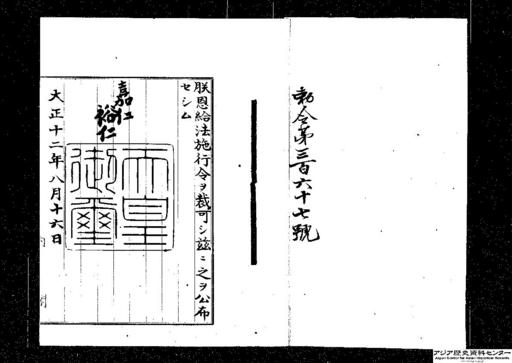 勅令第三百六十七號
朕恩給法施行令ヲ裁可シ茲ニ之ヲ公布
セシム
嘉仁
裕仁
天皇
御璽
大正十二年八月十六日
アジア歴史資料センター
Japan Center for Asian Historical Records